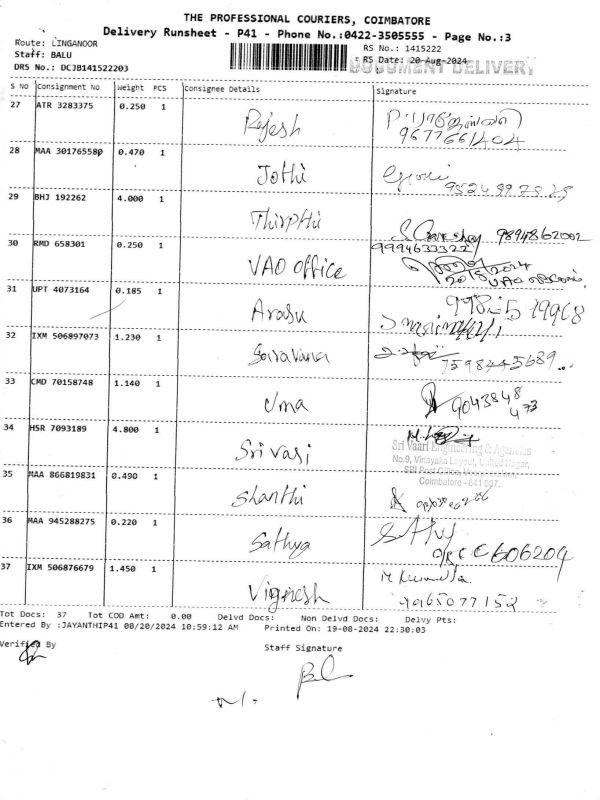 THE PROFESSIONAL COURIERS, COIMBATORE
Delivery Runsheet - P41 - Phone No.:0422-3505555 - Page No.:3
Route: LINGANOOR RS No.: 1415222
Staff: BALU RS Date: 20-Aug-2024
DRS No.: DCJB141522203 DOCUMENT DELIVERY
S No Consignment No Weight PCS Consignee Details Signature
27 ATR 3283375 0.250 1 Rajesh
9677661404
28 MAA 301765580 0.470 1 Jothi
29 BHJ 192262 4.000 1 Thirpthi 9894862002
30 RMD 658301 0.250 1 VAO office 9994633322
20/8/2024
31 UPT 4073164 0.185 1 Arasu
32 IXM 506897073 1.230 1 Saravana 7598445689
33 CMD 70158748 1.140 1 Uma 9043848
473
34 HSR 7093189 4.800 1 Sri Vasi
Sri Vaari Engineering & Agencies
No.9, Vinayaka Layout, United Nagar,
Coimbatore - 641 007.
35 MAA 866819831 0.490 1 Shanthi
36 MAA 945288275 0.220 1 Sathya
37 IXM 506876679 1.450 1 Vignesh
9965077152
Tot Docs: 37 Tot COD Amt: 0.00 Delvd Docs: Non Delvd Docs: Delvy Pts:
Entered By :JAYANTHIP41 08/20/2024 10:59:12 AM Printed On: 19-08-2024 22:30:03
Verified By Staff Signature